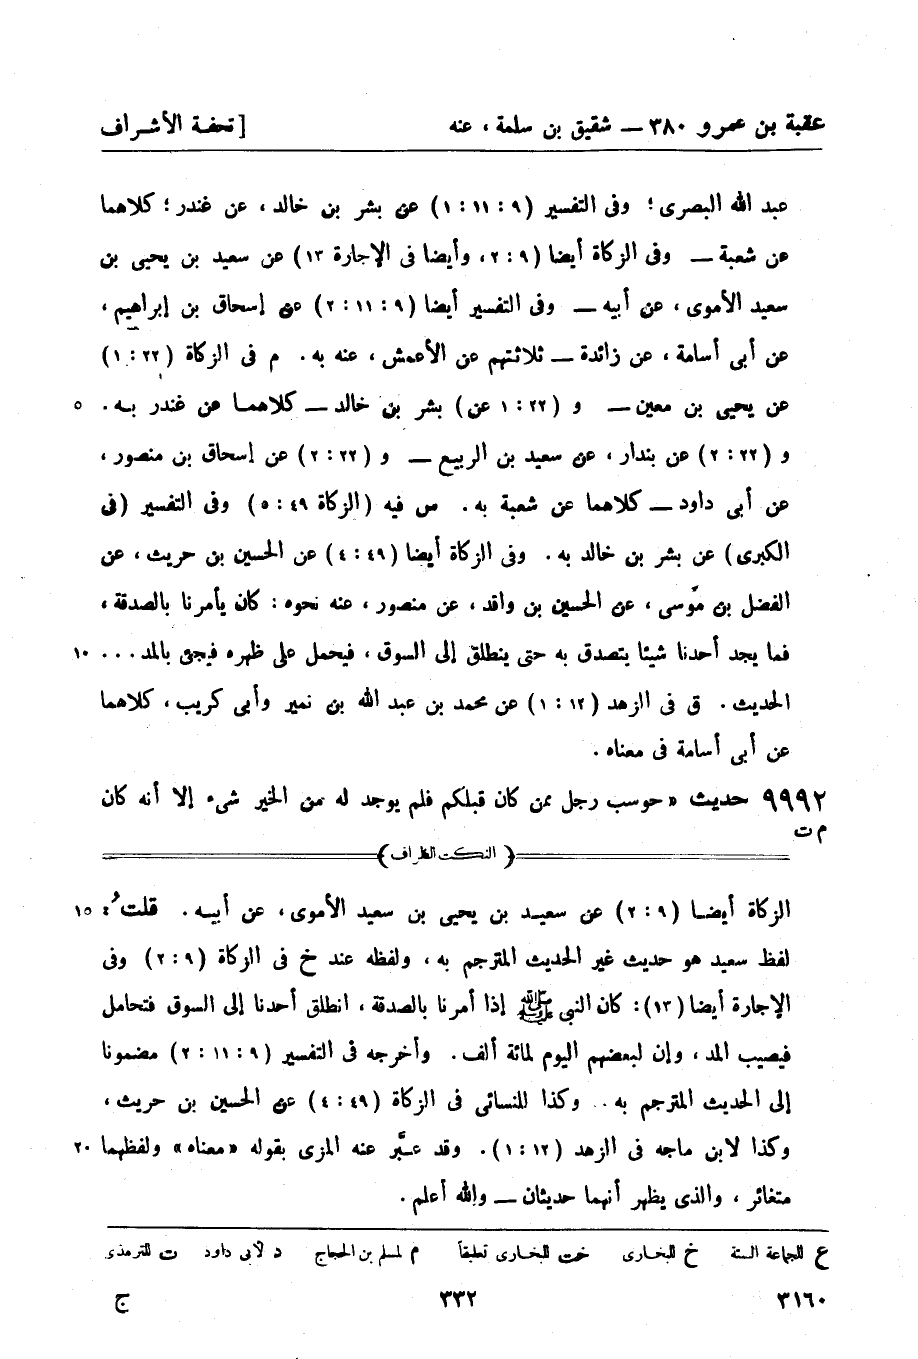 عقبة بن عمرو ٣٨٠ — شقيق بن سلمة ، عنه [ تحفة الأشراف
عبد الله البصرى ؛ وفى التفسير (٩ : ١١ : ١) عن بشر بن خالد ، عن غندر ؛ كلاهما
عن شعبة — وفى الزكاة أيضا (٩ : ٢ ، وأيضا فى الإجارة ١٣) عن سعيد بن يحيى بن
سعيد الأموى ، عن أبيه — وفى التفسير أيضا (٩ : ١١ : ٢) عن إسحاق بن إبراهيم ،
عن أبى أسامة ، عن زائدة — ثلاثتهم عن الأعمش ، عنه به . م فى الزكاة (٢٢ : ١)
عن يحيى بن معين — و (٢٢ : ١ عن) بشر بن خالد — كلاهما عن غندر به . ٥
و (٢٢ : ٢) عن بندار ، عن سعيد بن الربيع — و (٢٢ : ٢) عن إسحاق بن منصور ،
عن أبى داود — كلاهما عن شعبة به . س فيه (الزكاة ٤٩ : ٥) وفى التفسير (فى
الكبرى) عن بشر بن خالد به . وفى الزكاة أيضا (٤٩ : ٤) عن الحسين بن حريث ، عن
الفضل بن موسى ، عن الحسين بن واقد ، عن منصور ، عنه نحوه : كان يأمرنا بالصدقة ،
فما يجد أحدنا شيئا يتصدق به حتى ينطلق إلى السوق ، فيحمل على ظهره فيجىء بالمد ... ١٠
الحديث . ق فى الزهد (١٢ : ١) عن محمد بن عبد الله بن نمير وأبى كريب ، كلاهما
عن أبى أسامة فى معناه .
٩٩٩٢ حديث « حوسب رجل ممن كان قبلكم فلم يوجد له من الخير شىء إلا أنه كان
م ت
( النكت الظراف )
الزكاة أيضا (٩ : ٢) عن سعيد بن يحيى بن سعيد الأموى ، عن أبيه . قلتُ : ١٥
لفظ سعيد هو حديث غير الحديث المترجم به ، ولفظه عند خ فى الزكاة (٩ : ٢) وفى
الإجارة أيضا (١٣) : كان النبى ﷺ إذا أمرنا بالصدقة ، انطلق أحدنا إلى السوق فتحامل
فيصيب المد ، وإن لبعضهم اليوم لمائة ألف . وأخرجه فى التفسير (٩ : ١١ : ٢) مضمونا
إلى الحديث المترجم به . وكذا للنسائى فى الزكاة (٤٩ : ٤) عن الحسين بن حريث ،
وكذا لابن ماجه فى الزهد (١٢ : ١) . وقد عبَّر عنه المزى بقوله « معناه » ولفظهما ٢٠
متغائر ، والذى يظهر أنهما حديثان — والله أعلم .
ع للجماعة الستة خ للبخارى خت للبخارى تعليقاً م لمسلم بن الحجاج د لأبى داود ت للترمذى
٣١٦٠ ٣٣٢ ج